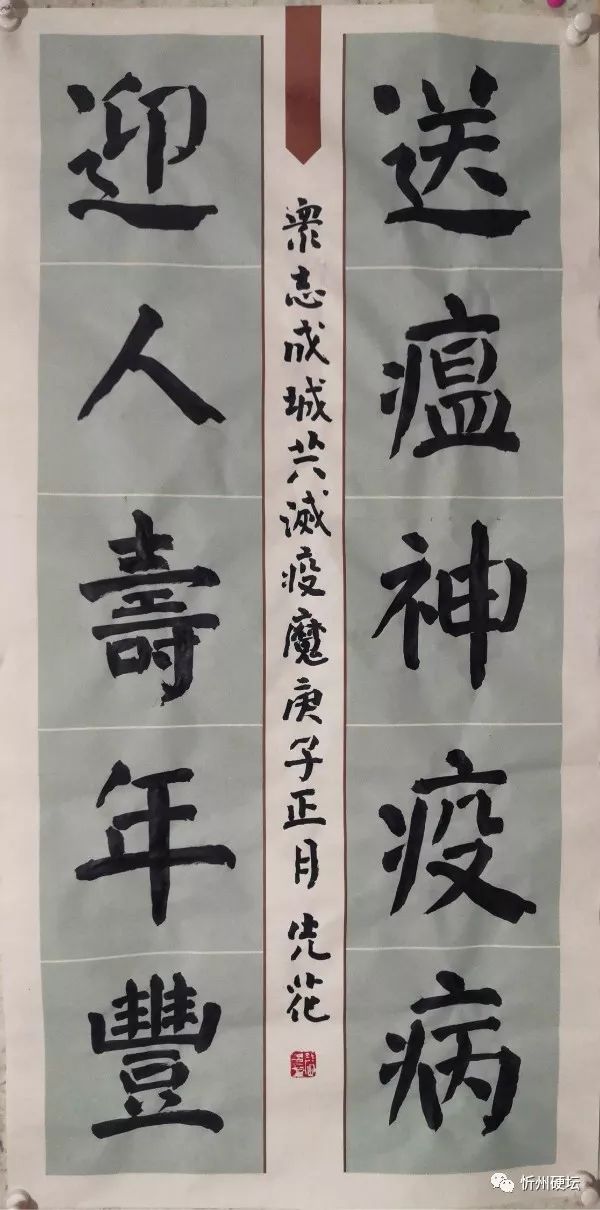 送瘟神疫病
迎人壽年豐
衆志成城共滅疫魔庚子正月 花
忻州硬坛